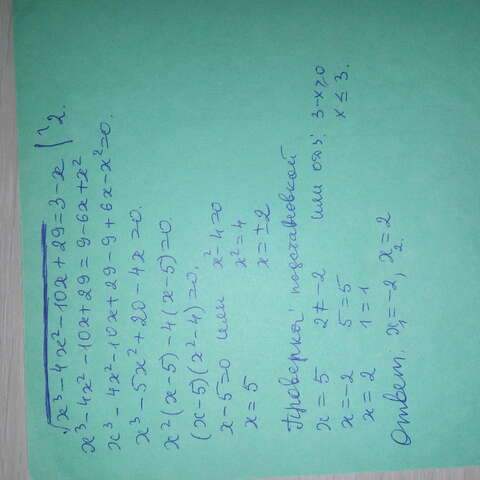 √x³-4x²-10x+29=3-x |↑2.
x³-4x²-10x+29=9-6x+x²
x³-4x²-10x+29-9+6x-x²=0.
x³-5x²+20-4x=0.
x²(x-5)-4(x-5)=0.
(x-5)(x²-4)=0.
x-5=0 или x²-4=0
x=5 x²=4
x=±2
Проверка: подстановкой
x=5 2≠-2 или одз: 3-x≥0
x=-2 5=5 x≤3.
x=2 1=1
Ответ: x₁=-2, x₂=2